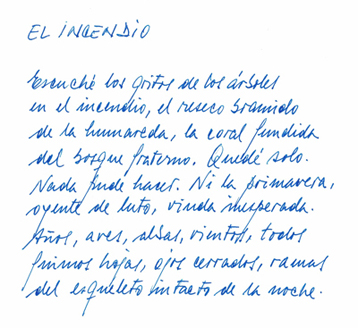 EL INCENDIO
Escuché los gritos de los árboles
en el incendio, el reseco bramido
de la humareda, la coral fundida
del bosque fraterno. Quedé solo.
Nada pude hacer. Ni la primavera,
oyente de luto, viuda inesperada.
Años, aves, albas, vientos, todos
fuimos hojas, ojos cerrados, ramas
del esqueleto intacto de la noche.